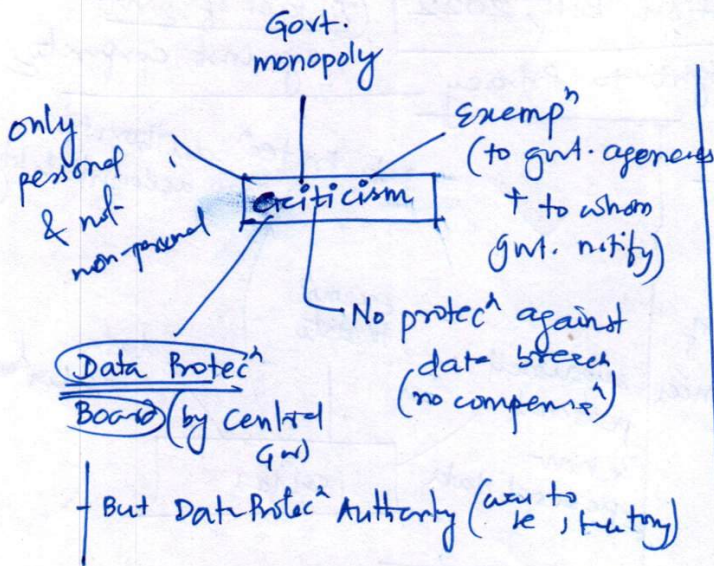 Govt.
monopoly
only
personal
& not
non-personal
Exempⁿ
(to govt. agencies
+ to whom
govt. notify)
Criticism
No protecⁿ against
data breach
(no compensⁿ)
Data Protecⁿ
Board (by central
Govt)
But Data Protecⁿ Authority (was to
be statutory)